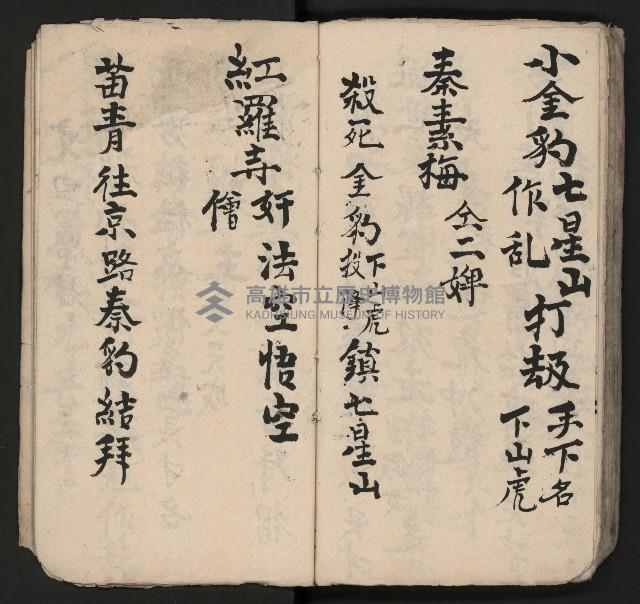 小金豹七星山打刼手下名
作乱下山虎
秦素梅仝二婢
殺死金豹投下降虎鎮七星山
紅羅寺奸法空悟空
僧
苗青往京路秦豹結拜
高雄市立歷史博物館
KAOHSIUNG MUSEUM OF HISTORY